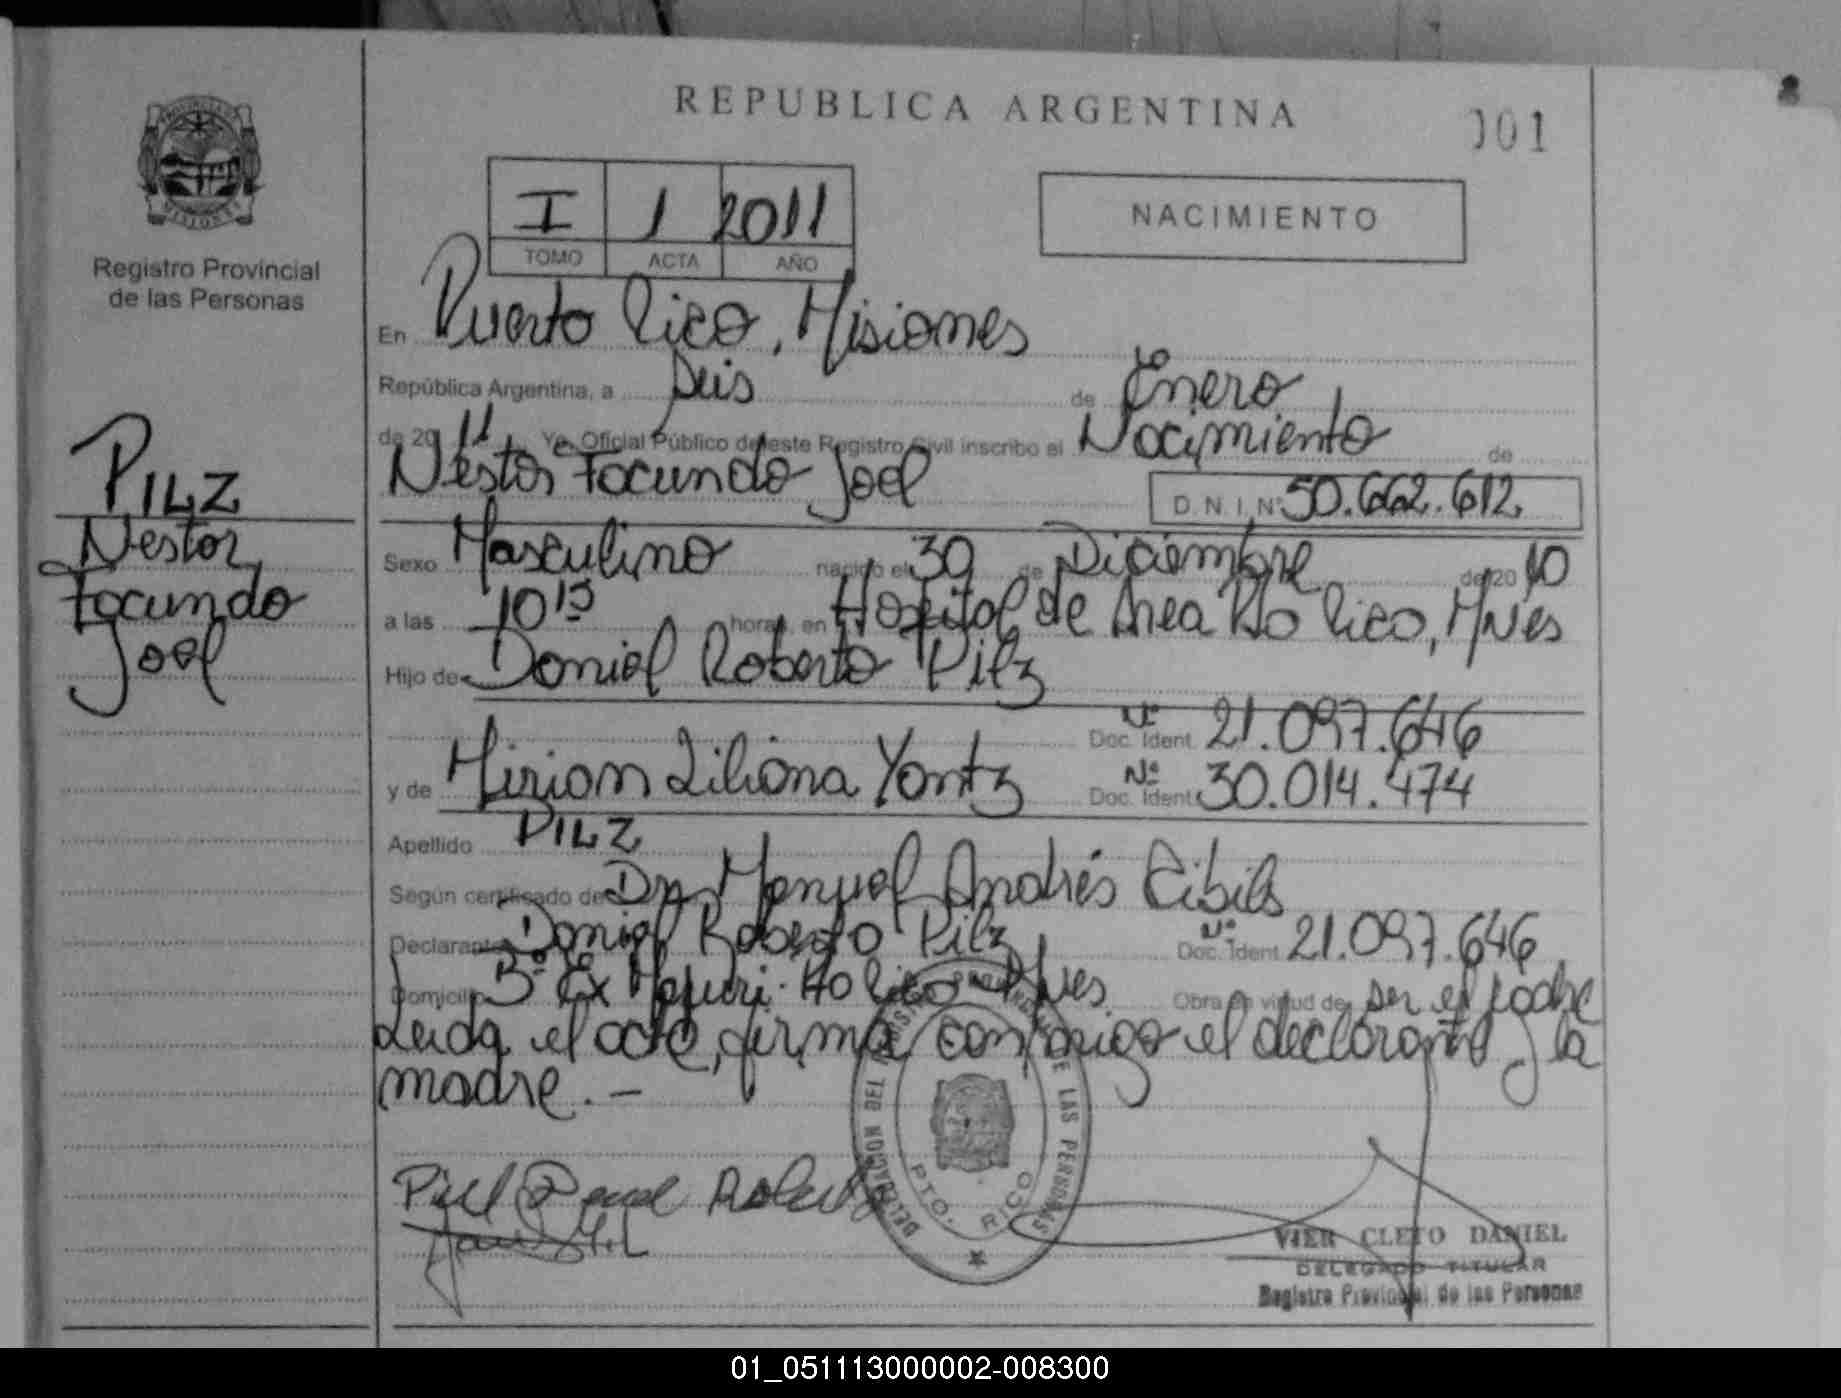 REPUBLICA ARGENTINA
001
PROVINCIA DE
MISIONES
Registro Provincial
de las Personas
I 1 2011
TOMO ACTA AÑO
NACIMIENTO
En Puerto Rico, Misiones
República Argentina, a Seis de Enero
de 2011 Yo, Oficial Público de este Registro Civil inscribo el Nacimiento de
Néstor Facundo Joel
D.N.I. Nº 50.662.612
PILZ
Nestor
Facundo
Joel
Sexo Masculino nacido el 30 de Diciembre de 2010
a las 10 15 horas, en Hospital de Area Pto Rico, Mnes
Hijo de Daniel Roberto Pilz
Nº
Doc. Ident. 21.097.646
y de Mirian Liliana Yantz Nº
Doc. Ident. 30.014.474
Apellido PILZ
Según certificado de Dr. Manuel Andrés Cibils
Declarante Daniel Roberto Pilz Nº
Doc. Ident. 21.097.646
Domicilio Bº Ex Pto Rico Mnes Obra en virtud de ser el padre
Leida el acta, firma conmigo el declarante y la
madre. -
DELEGACION DEL REGISTRO PROVINCIAL DE LAS PERSONAS
PTO. RICO
VIER CLETO DANIEL
DELEGADO TITULAR
Registro Provincial de las Personas
01_051113000002-008300